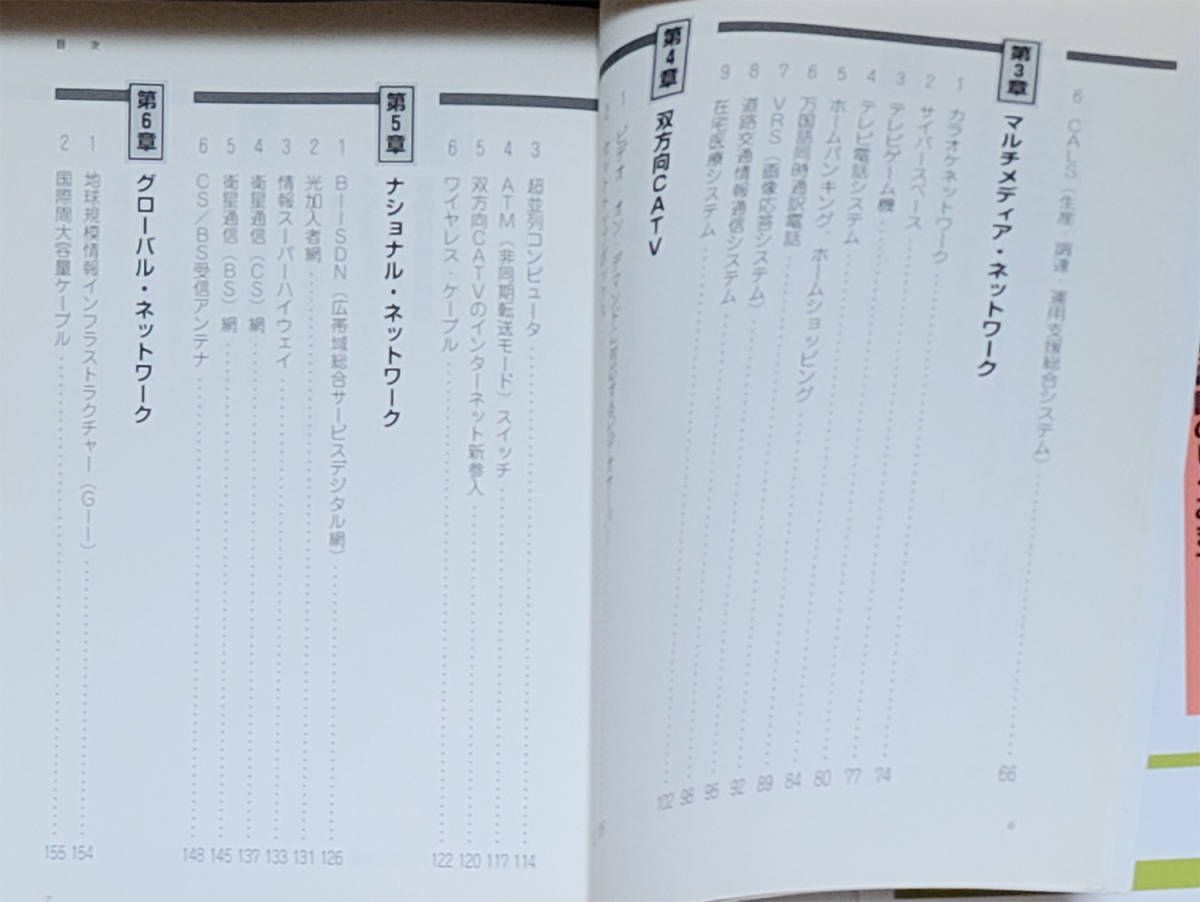 6 CALS（生産・調達・運用支援総合システム）……66
第3章 マルチメディア・ネットワーク
1 カラオケネットワーク……74
2 サイバースペース……77
3 テレビゲーム機……80
4 テレビ電話システム……84
5 ホームバンキング、ホームショッピング……89
6 万国語同時通訳電話……92
7 VRS（画像応答システム）……95
8 道路交通情報通信システム……98
9 在宅医療システム……102
第4章 双方向CATV
1 ビデオ・オン・デマンド
6
目 次
3 超並列コンピュータ……114
4 ATM（非同期転送モード）スイッチ……117
5 双方向CATVのインターネット新参入……120
6 ワイヤレス・ケーブル……122
第5章 ナショナル・ネットワーク
1 B－ISDN（広帯域総合サービスデジタル網）……126
2 光加入者網……131
3 情報スーパーハイウェイ……133
4 衛星通信（CS）網……137
5 衛星通信（BS）網……145
6 CS／BS受信アンテナ……148
第6章 グローバル・ネットワーク
1 地球規模情報インフラストラクチャー（GII）……154
2 国際間大容量ケーブル……155
7